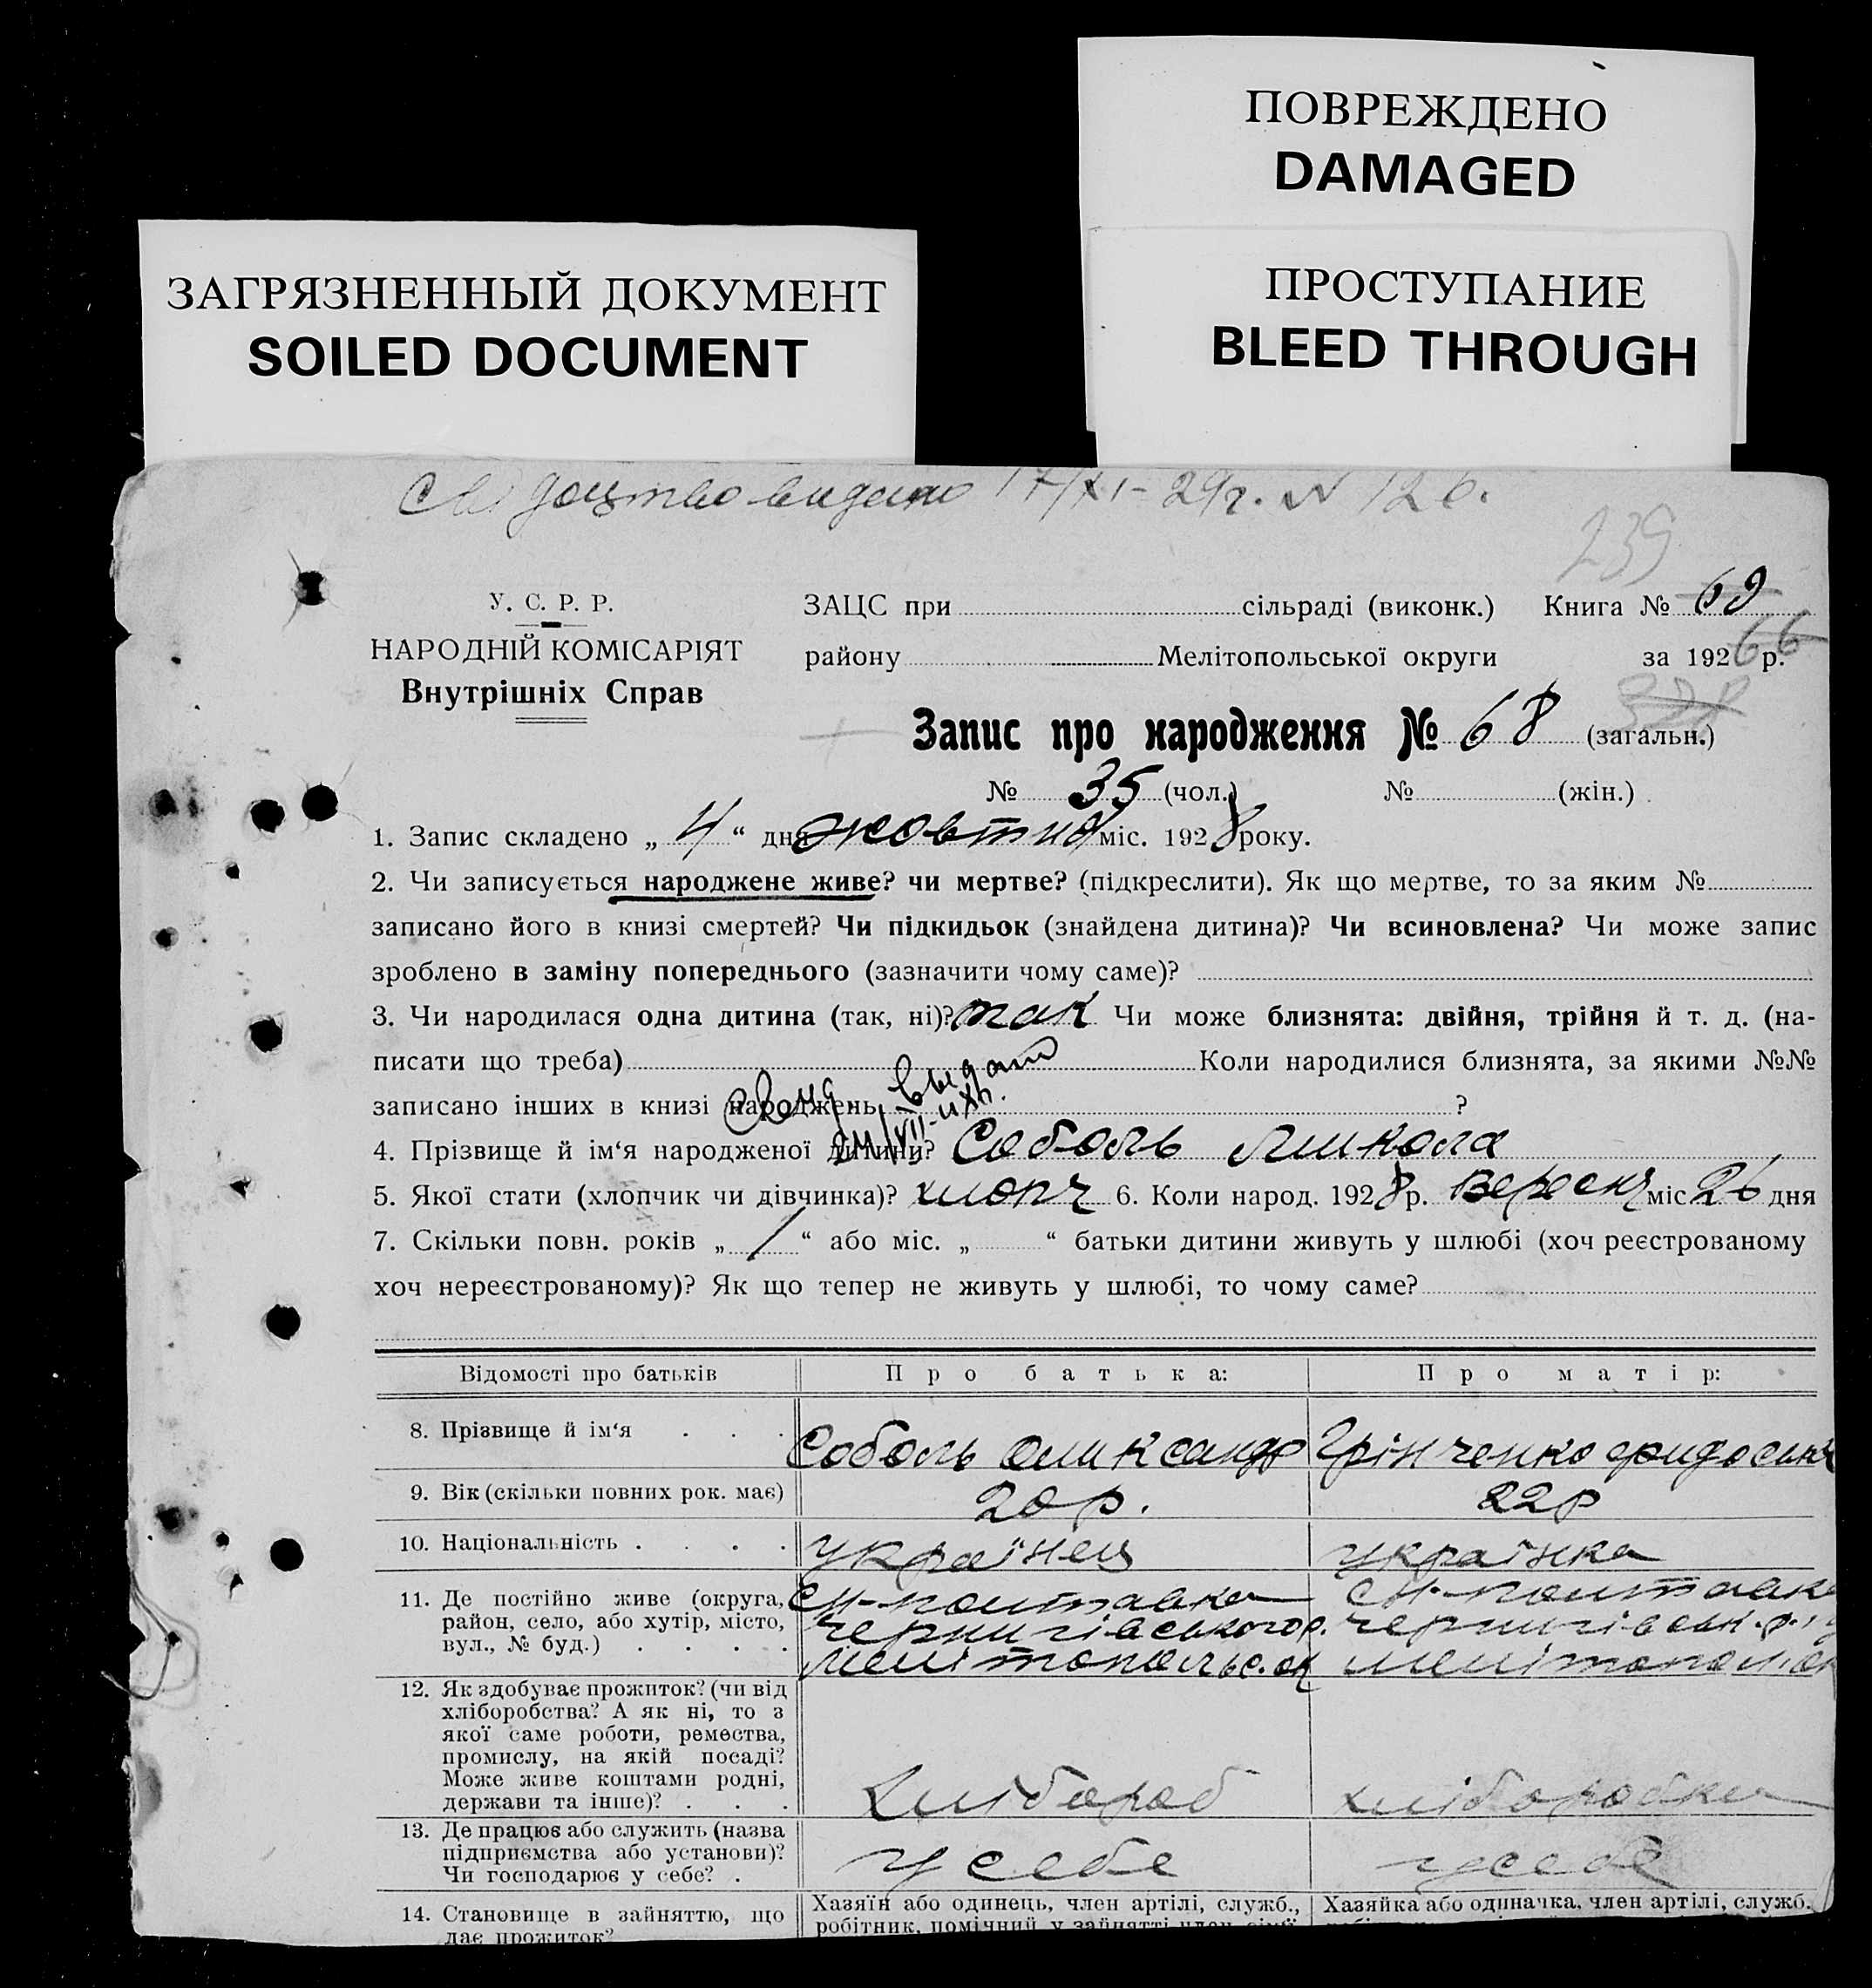 ПОВРЕЖДЕНО
DAMAGED
ЗАГРЯЗНЕННЫЙ ДОКУМЕНТ
SOILED DOCUMENT
ПРОСТУПАНИЕ
BLEED THROUGH
Свідоцтво видано 17/XI-29г. N 126.
239
У. С. Р. Р.
НАРОДНІЙ КОМІСАРІЯТ
Внутрішніх Справ
ЗАЦС при сільраді (виконк.) Книга № 69
району Мелітопольської округи за 192 р. 66
Запис про народження № 68 (загальн.)
№ 35 (чол.) № (жін.)
1. Запис складено „ 4 “ дня жовтня міс. 1928 року.
2. Чи записується народжене живе? чи мертве? (підкреслити). Як що мертве, то за яким №
записано його в книзі смертей? Чи підкидьок (знайдена дитина)? Чи всиновлена? Чи може запис
зроблено в заміну попереднього (зазначити чому саме)?
3. Чи народилася одна дитина (так, ні)? так Чи може близнята: двійня, трійня й т. д. (на-
писати що треба) Коли народилися близнята, за якими №№
записано інших в книзі народжень ?
4. Прізвище й ім‘я народженої дитини? Соболь Микола
5. Якої стати (хлопчик чи дівчинка)? хлопч 6. Коли народ. 1928 р. Вересня міс. 26 дня
7. Скільки повн. років „ 1 “ або міс. „ “ батьки дитини живуть у шлюбі (хоч реєстрованому
хоч нереєстрованому)? Як що тепер не живуть у шлюбі, то чому саме?
Відомості про батьків Про батька: Про матір:
8. Прізвище й ім‘я Соболь Олександр Грінченко Фидоська
9. Вік (скільки повних рок. має) 20 р. 22 р
10. Національність українец українка
11. Де постійно живе (округа, район, село, або хутір, місто, вул., № буд.)
Н-Полтавка Н-Полтавка
Чернигівського р. Чернигівськ. р.
Мелітопольс. ок Мелітопол. ок
12. Як здобуває прожиток? (чи від
хліборобства? А як ні, то з
якої саме роботи, ремества,
промислу, на якій посаді?
Може живе коштами родні,
держави та інше)? Хлібороб хліборобка
13. Де працює або служить (назва
підприємства або установи)?
Чи господарює у себе? у себе у себе
14. Становище в зайняттю, що
дає прожиток?
Хазяїн або одинець, член артілі, служб., Хазяйка або одиначка, член артілі, служб.
робітник, помічний у зайнятті член сім'ї